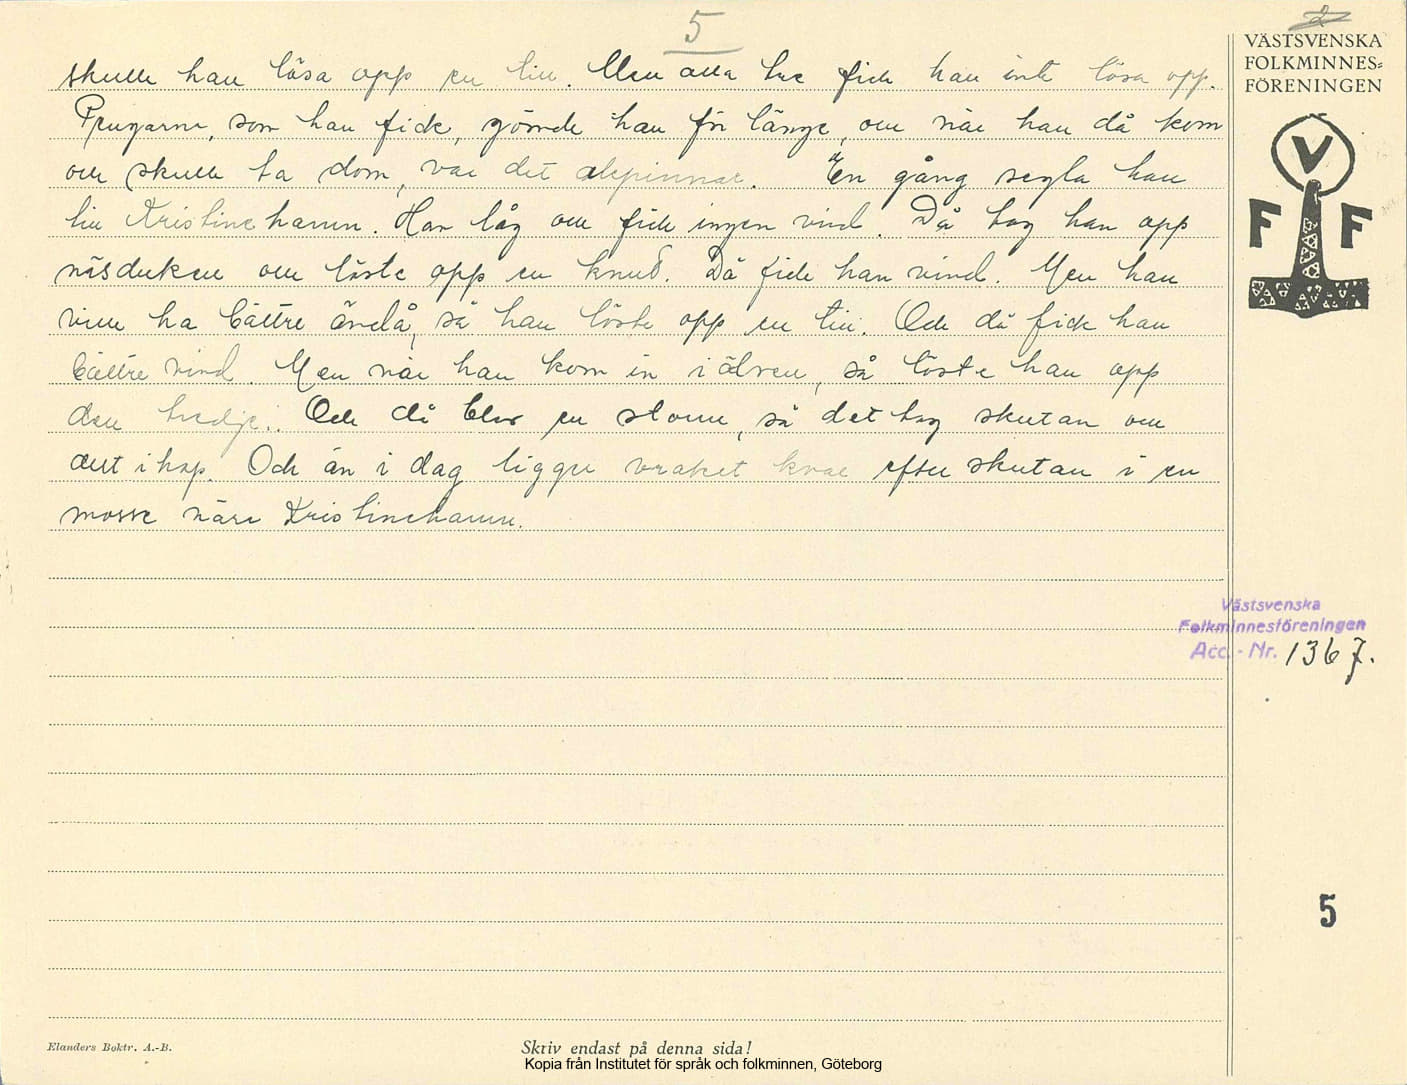 5
2
VÄSTSVENSKA
FOLKMINNES=
FÖRENINGEN
skulle han lösa opp en till. Men alla tre fick han inte lösa opp.
Pengarna, som han fick, gömde han för länge, och när han då kom
och skulle ta dom, var det alepinnar. En gång segla han
till Kristinehamn. Han låg och fick ingen vind. Då tog han opp
näsduken och löste opp en knut. Då fick han vind. Men han
ville ha bättre ändå, så han löste opp en till. Och då fick han
bättre vind. Men när han kom in i älven, så löste han opp
den tredje. Och då blev en storm, så det tog skutan och
allt ihop. Och än i dag ligger vraket kvar efter skutan i en
mosse nära Kristinehamn.
V
F F
Västsvenska
Folkminnesföreningen
Acc. - Nr. 1367.
5
Elanders Boktr. A.-B.
Skriv endast på denna sida!
Kopia från Institutet för språk och folkminnen, Göteborg